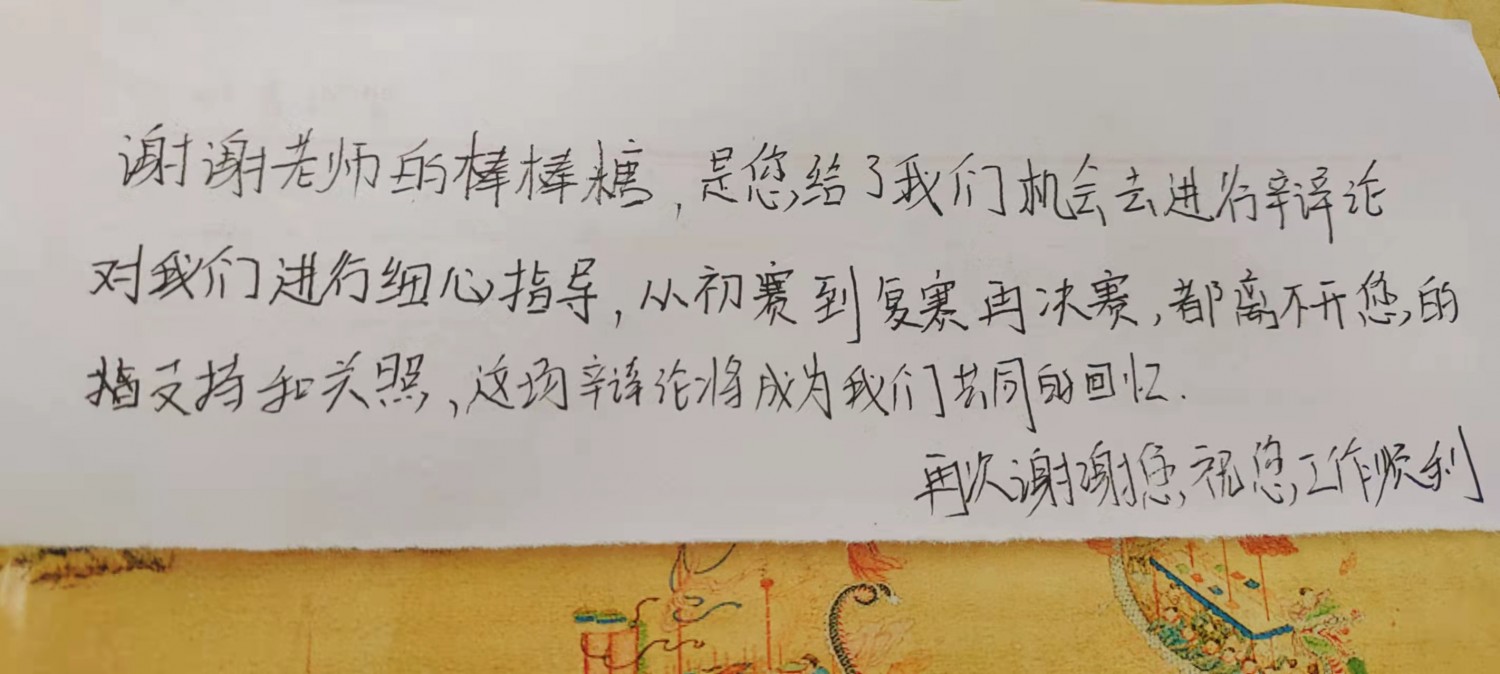 谢谢老师的棒棒糖，是您给了我们机会去进行辩论
对我们进行细心指导，从初赛到复赛再决赛，都离不开您的
支持和关照，这场辩论将成为我们共同的回忆.
再次谢谢您，祝您工作顺利